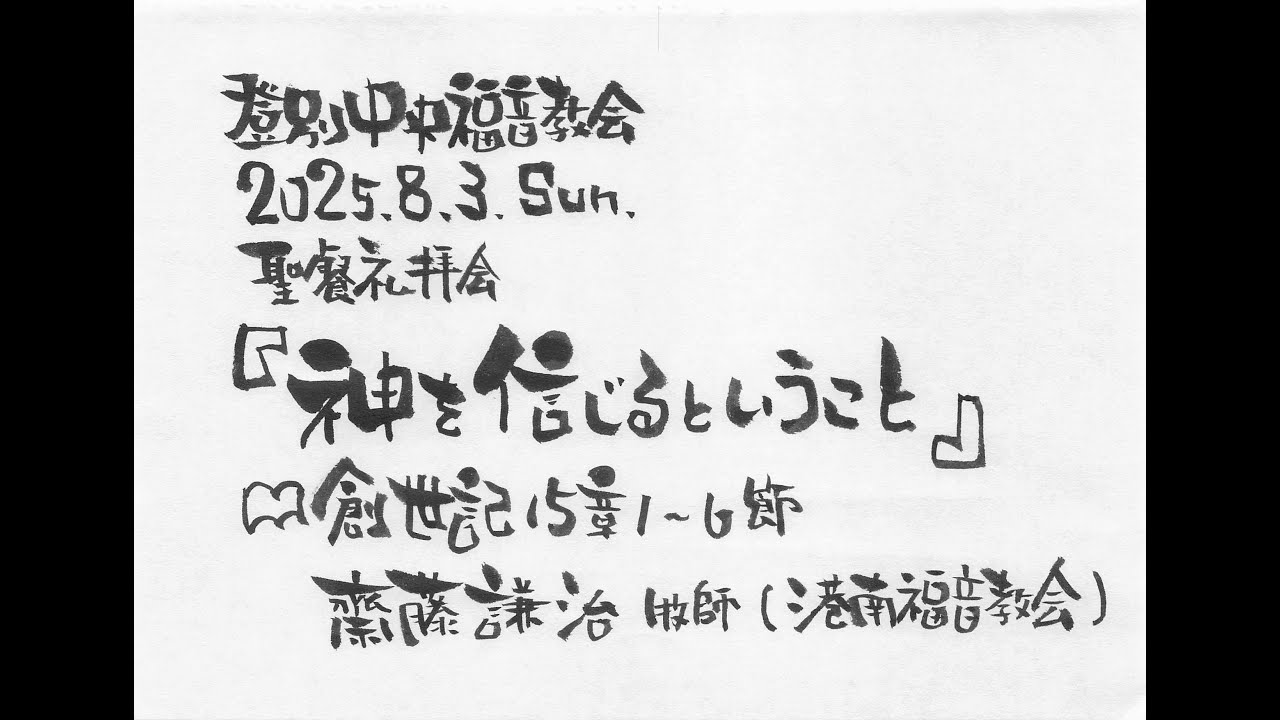 登別中央福音教会
2025.8.3.Sun.
聖餐礼拝会
『神を信じるということ』
創世記15章1~6節
齋藤謙治 牧師(港南福音教会)